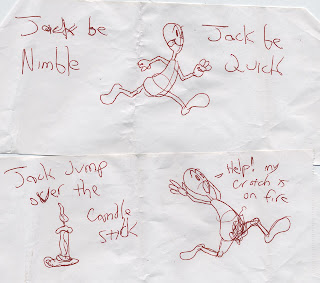 Jack be
Nimble
Jack be
Quick
Jack Jump
over the
Candle
stick
Help! my
crotch is
on fire